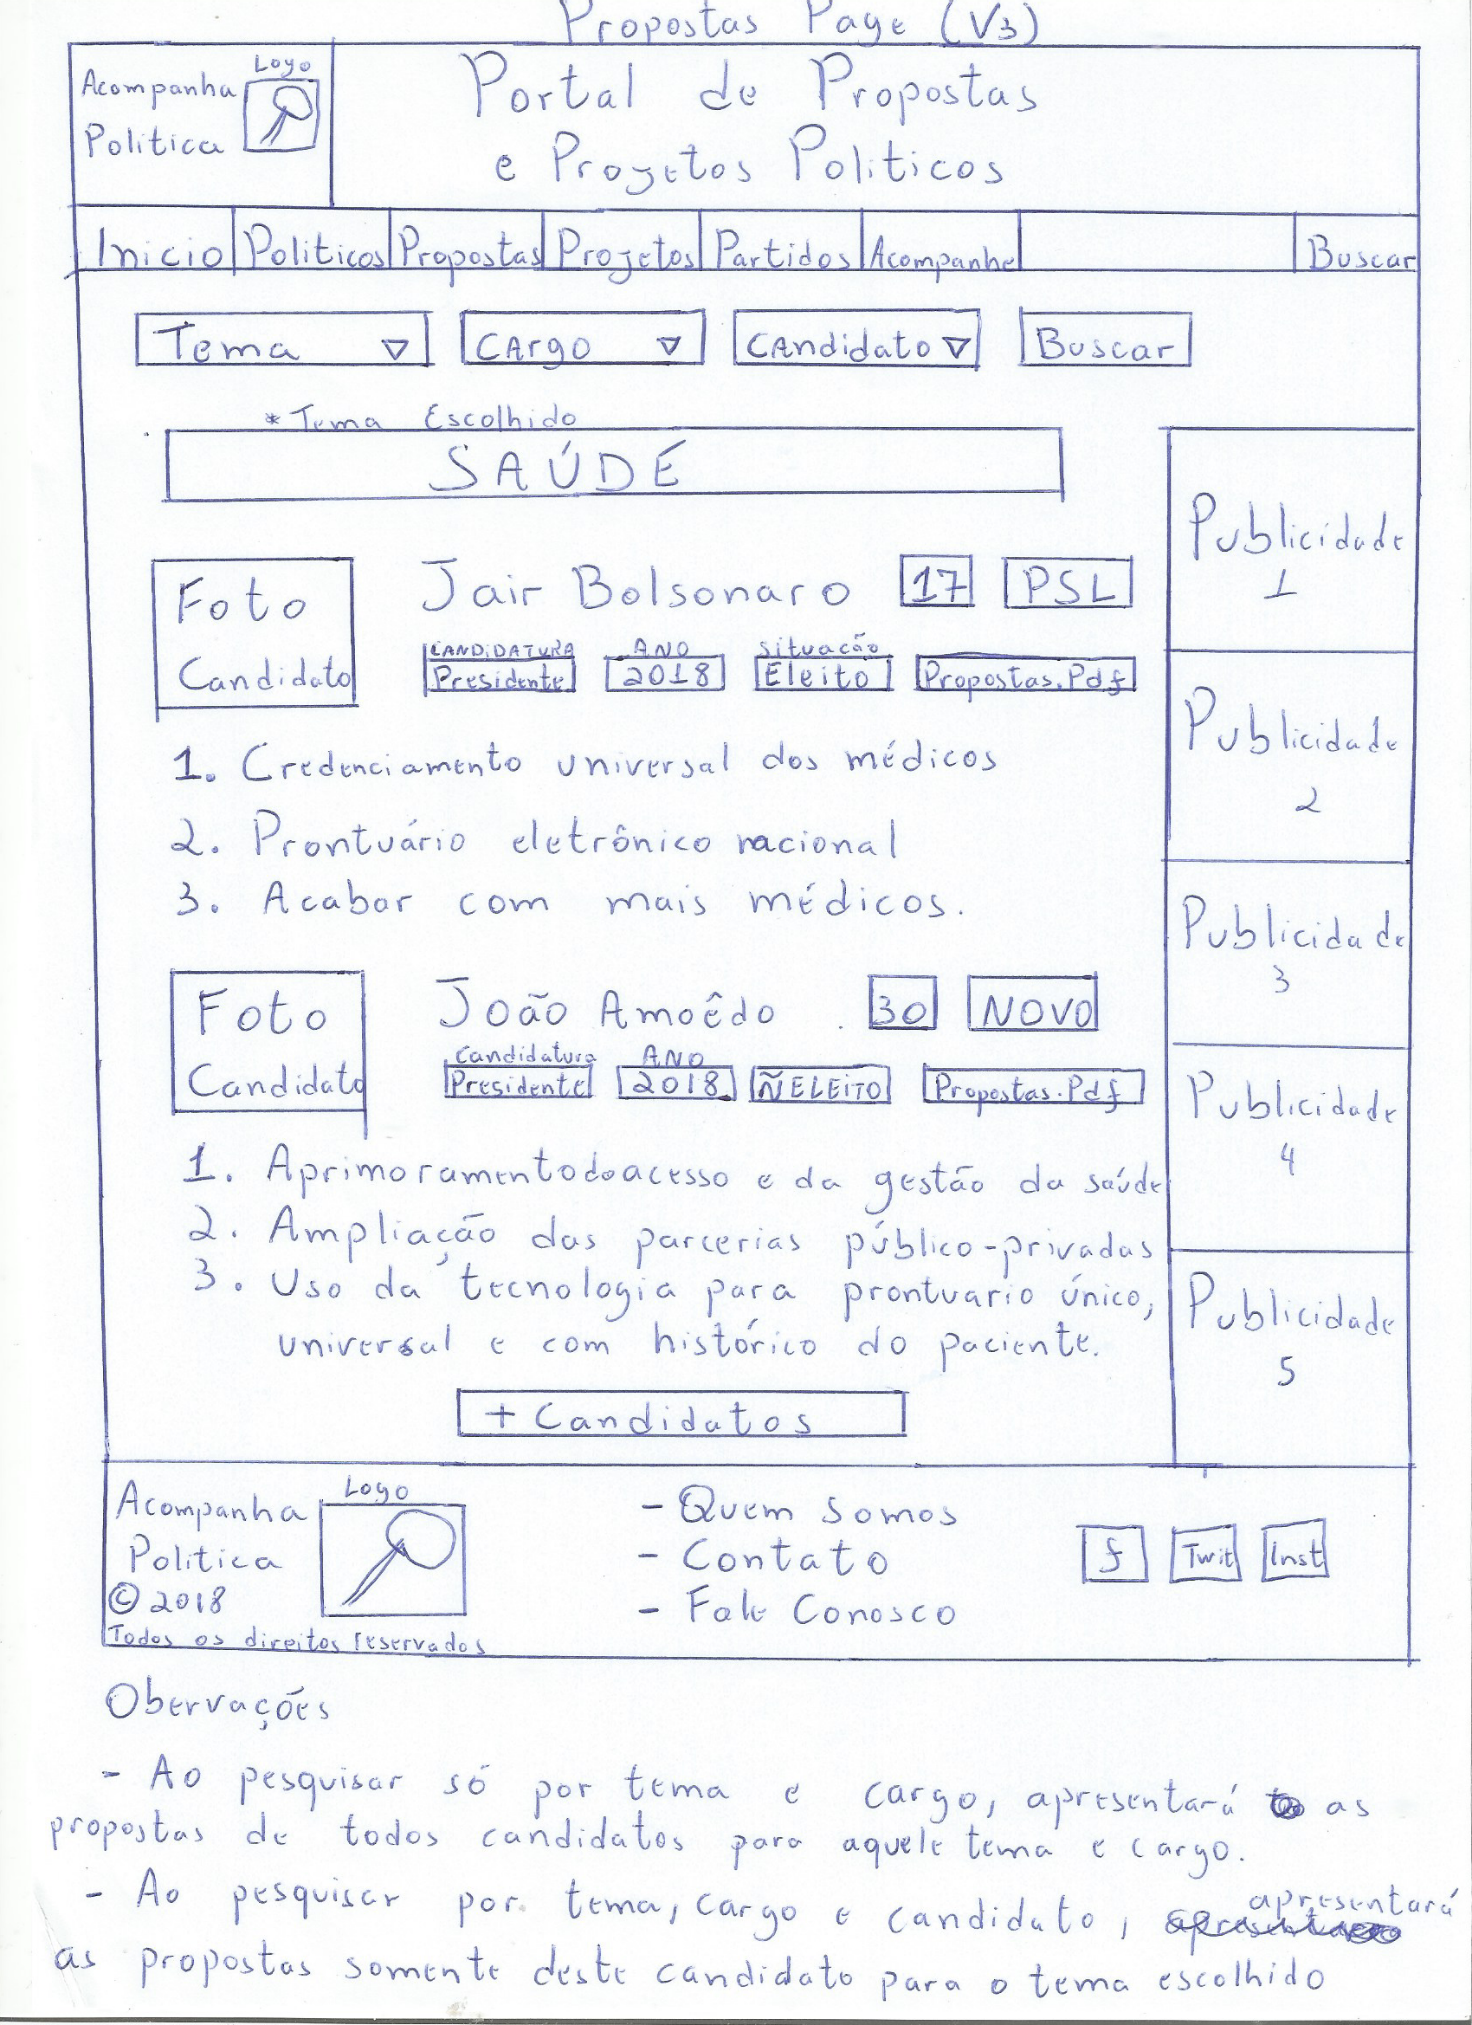 Propostas Page (V3)
Acompanha
Politica
Logo
Portal de Propostas
e Projetos Politicos
Inicio Politicos Propostas Projetos Partidos Acompanhe Buscar
Tema CArgo CAndidato Buscar
* Tema Escolhido
SAÚDE
Foto
Candidato
Jair Bolsonaro 17 PSL
CANDiDATURA ANO Situacão
Presidente 2018 Eleito Propostas.Pdf
1. Credenciamento universal dos médicos
2. Prontuário eletrônico nacional
3. Acabar com mais médicos.
Foto
Candidato
João Amoêdo 30 NOVO
Candidatura ANO
Presidente 2018 ÑELEITO Propostas.Pdf
1. Aprimoramento do acesso e da gestão da saúde
2. Ampliação das parcerias público-privadas
3. Uso da tecnologia para prontuario único,
universal e com histórico do paciente.
+ Candidatos
Publicidade
1
Publicidade
2
Publicidade
3
Publicidade
4
Publicidade
5
Acompanha
Politica
© 2018
Todos os direitos reservados
Logo
- Quem Somos
- Contato
- Fale Conosco
f Twit Inst
Obervações
- Ao pesquisar só por tema e cargo, apresentará as
propostas de todos candidatos para aquele tema e cargo.
- Ao pesquisar por tema, cargo e candidato, apresentará
as propostas somente deste candidato para o tema escolhido